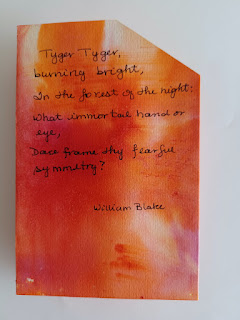 Tyger Tyger,
burning bright,
In the forest of the night:
What immortal hand or
eye,
Dare frame thy fearful
symmetry?
William Blake